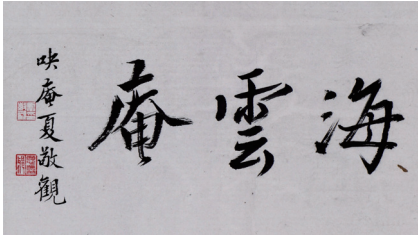 海雲庵
吷庵夏敬觀